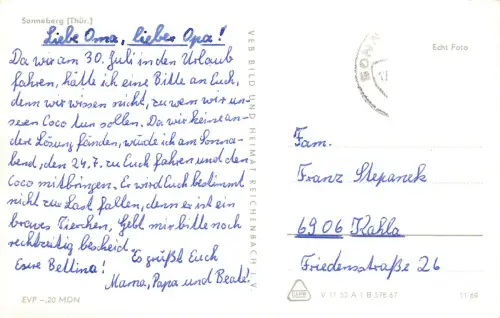 Sonneberg (Thür.)
Liebe Oma, lieber Opa!
Da wir am 30. Juli in den Urlaub
fahren, hätte ich eine Bitte an Euch,
denn wir wissen nicht, zu wem wir un-
seren Coco tun sollen. Da wir keine an-
dere Lösung fänden, würde ich am Sonna-
bend, den 24.7. zu Euch fahren und den
Coco mitbringen. Er wird Euch bestimmt
nicht zur Last fallen, denn er ist ein
braves Tierchen, Gebt mir bitte noch
rechtzeitig bescheid.
Es grüßt Euch
Eure Bettina!
Mama, Papa und Beate!
EVP –,20 MDN
VEB BILD UND HEIMAT REICHENBACH I. V.
Echt Foto
SONN
Fam.
Franz Stepanek
6906 Kahla
Friedensstraße 26
V 11 52 A 1 B 578/67
11/69